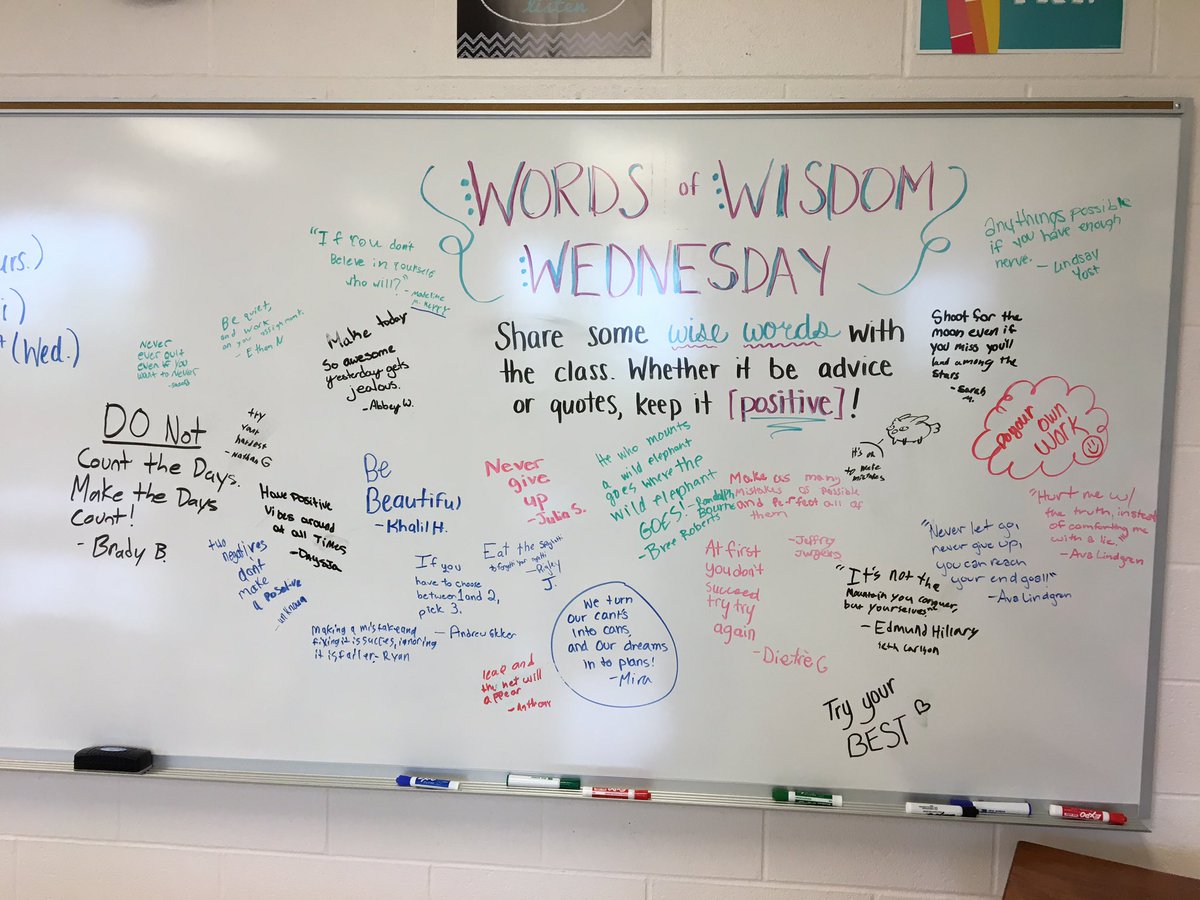 listen
WORDS of WISDOM
WEDNESDAY
Share some wise words with
the class. Whether it be advice
or quotes, keep it [positive]!
urs.)
i)
(Wed.)
"If you don't
Beleve in yourself
who will?"
Make today
So awesome
yesterday gets
jealous.
-Abbey W.
Be quiet,
and work
on your assignment.
-Ethan N
Never
ever quit
even if you
want to Never
DO Not
Count the Days.
Make the Days
Count!
- Brady B.
try
your
hardest
-Nathan G
Have positive
vibes around
at all Times
-Daysja
two
negatives
dont
make
a positive
-unknown
Be
Beautiful
-Khalil H.
Never
give
up
-Julia S.
He who mounts
a wild elephant
goes where the
wild elephant
GOES! -Randolph
Bourne
-Bree Roberts
Make as many
mistakes as possible
and perfect all of
them
-Jeffry
Jurgens
it's ok
to make
mistakes
anythings possible
if you have enough
nerve.
- Lindsay
Yost
Shoot for the
moon even if
you miss you'll
land among the
stars
-Sarah
Do your
own
work
"Hurt me w/
the truth, instead
of comforting me
with a lie."
-Ava Lindgren
"Never let go,
never give up,
you can reach
your end goal!"
-Ava Lindgren
"It's not the
Mountain you conquer,
but yourselves"
- Edmund Hillary
Seth Carlson
At first
you don't
succeed
try try
again
-Dietre G
If you
have to choose
between 1 and 2,
pick 3.
- Andrew
Eat the
J.
Making a mistake and
fixing it is succes, ignoring
it is failer- Ryan
leap and
the net will
appear
We turn
our cants
into cans,
and our dreams
in to plans!
-Mira
Try your
BEST
EXPO